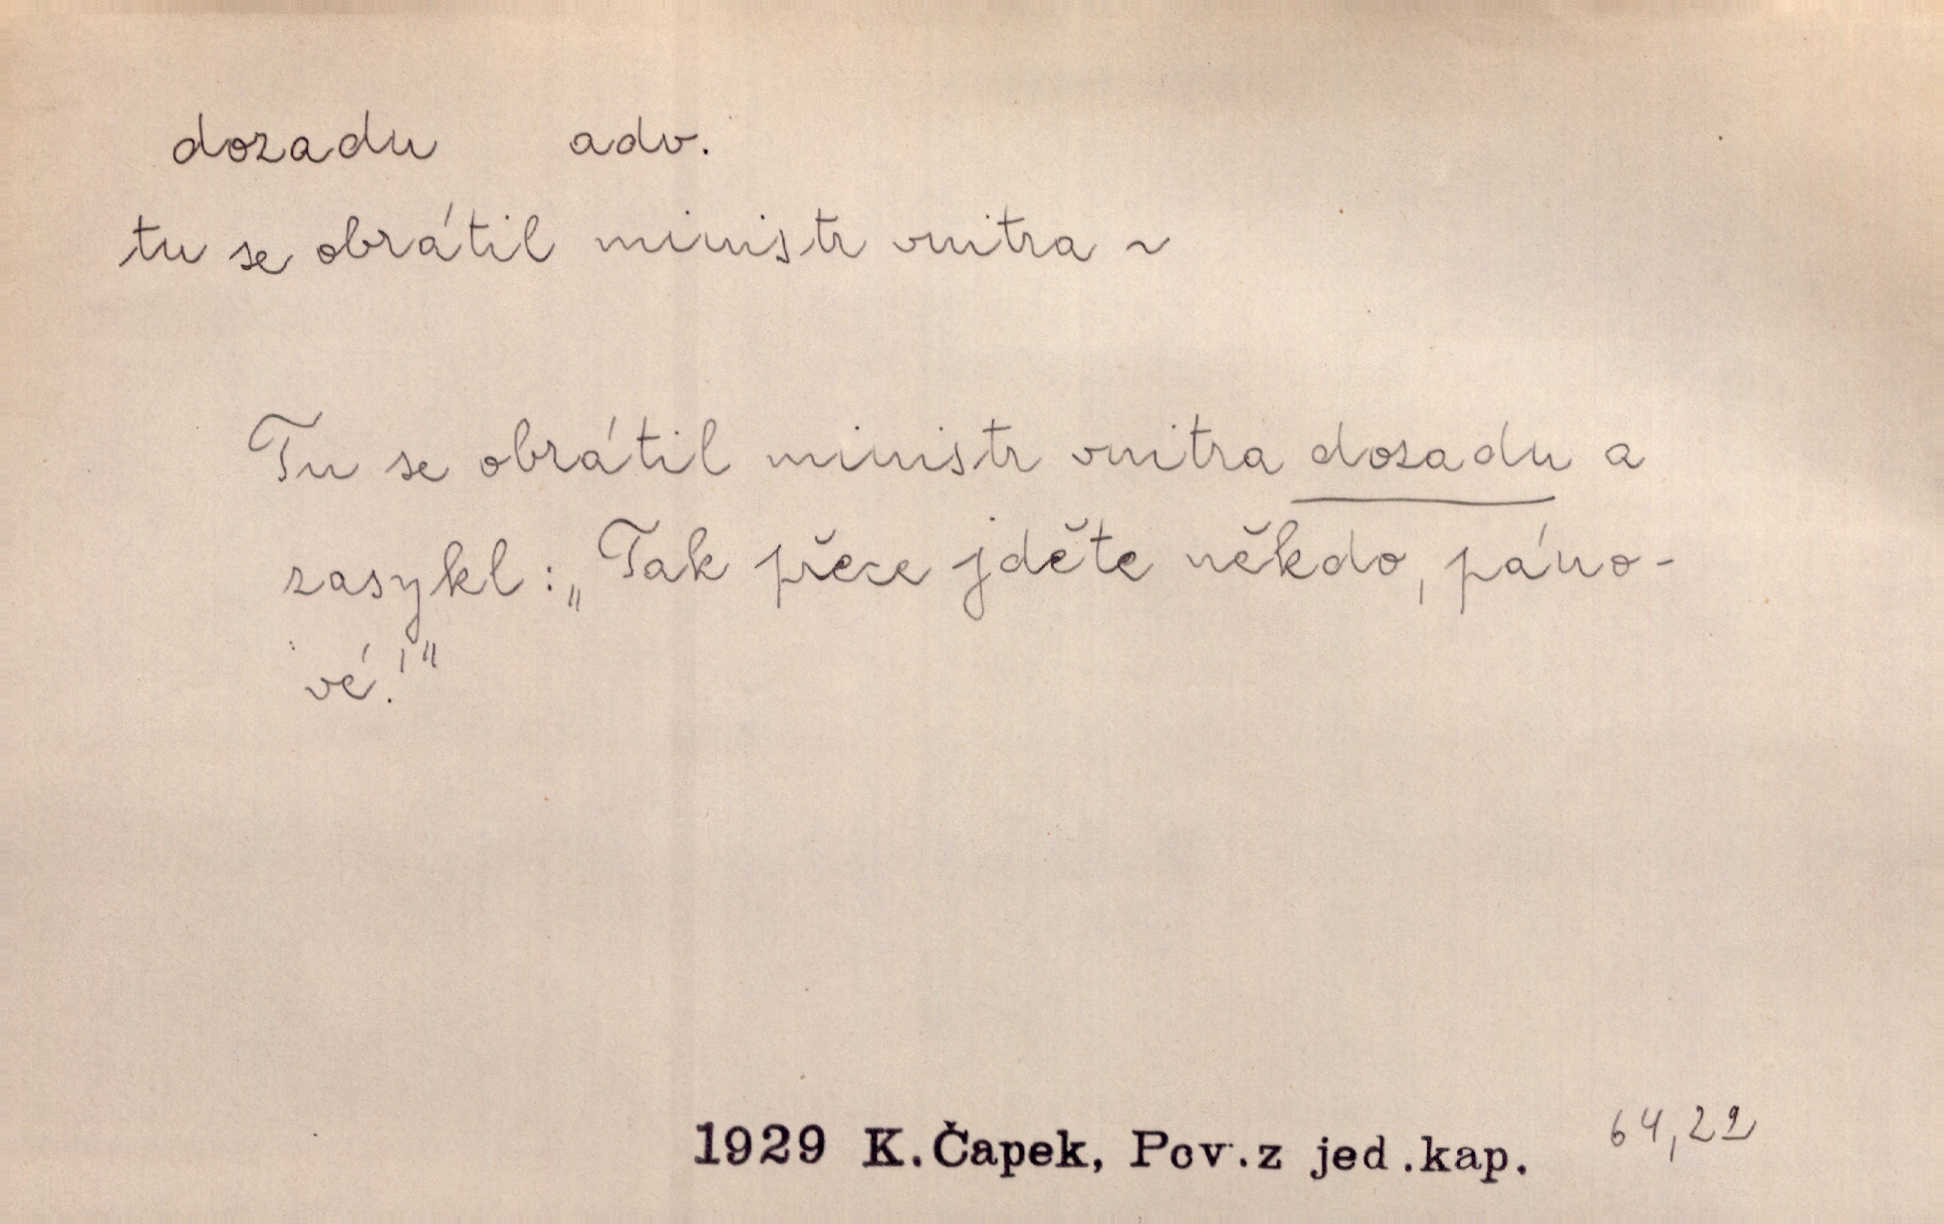 dozadu adv.
tu se obrátil ministr vnitra ~
Tu se obrátil ministr vnitra dozadu a
zasykl: „Tak přece jděte někdo, páno-
vé!"
1929 K. Čapek, Pov. z jed. kap. 64,22